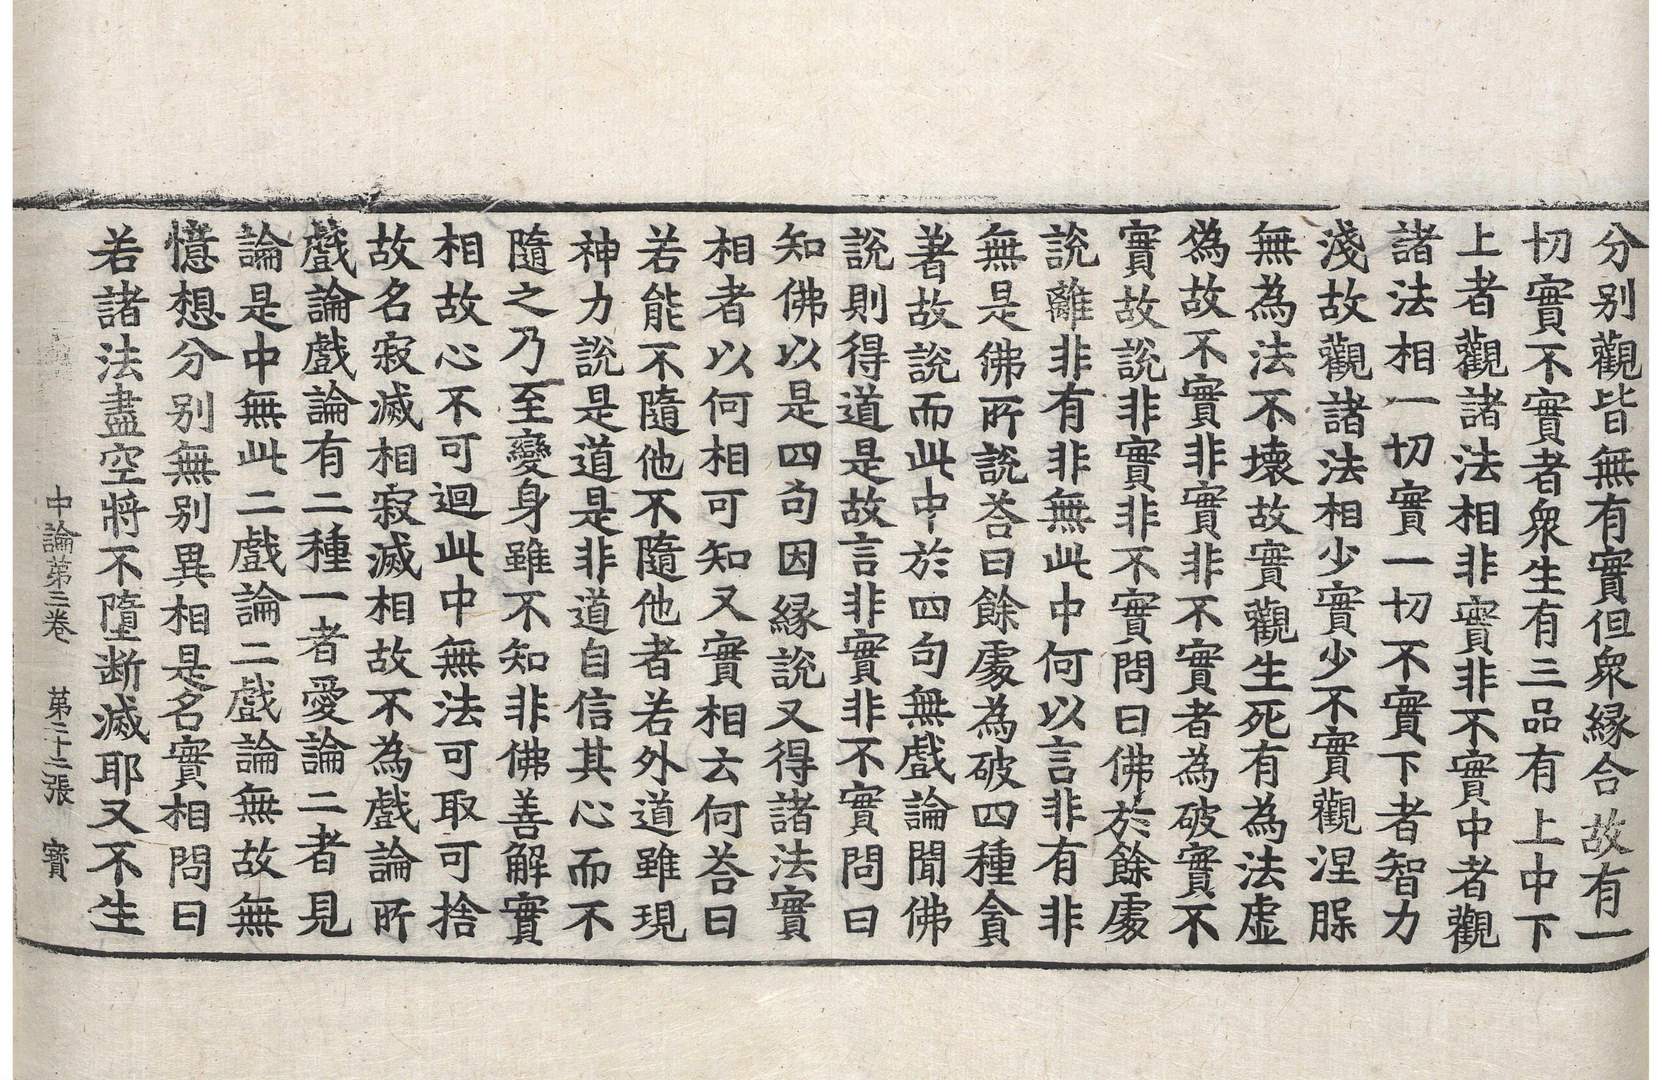 分別觀皆無有實但衆緣合故有一
切實不實者衆生有三品有上中下
上者觀諸法相非實非不實中者觀
諸法相一切實一切不實下者智力
淺故觀諸法相少實少不實觀涅脲
無為法不壞故實觀生死有為法虛
偽故不實非實非不實者為破實不
實故說非實非不實問曰佛於餘處
說離非有非無此中何以言非有非
無是佛所說荅曰餘處為破四種貪
著故說而此中於四句無戲論聞佛
說則得道是故言非實非不實問曰
知佛以是四句因緣說又得諸法實
相者以何相可知又實相云何荅曰
若能不隨他不隨他者若外道雖現
神力說是道是非道自信其心而不
隨之乃至變身雖不知非佛善解實
相故心不可迴此中無法可取可捨
故名寂滅相寂滅相故不為戲論所
戲論戲論有二種一者愛論二者見
論是中無此二戲論二戲論無故無
憶想分別無別異相是名實相問曰
若諸法盡空將不墮斷滅耶又不生
中論第三卷 第二十二張 寳